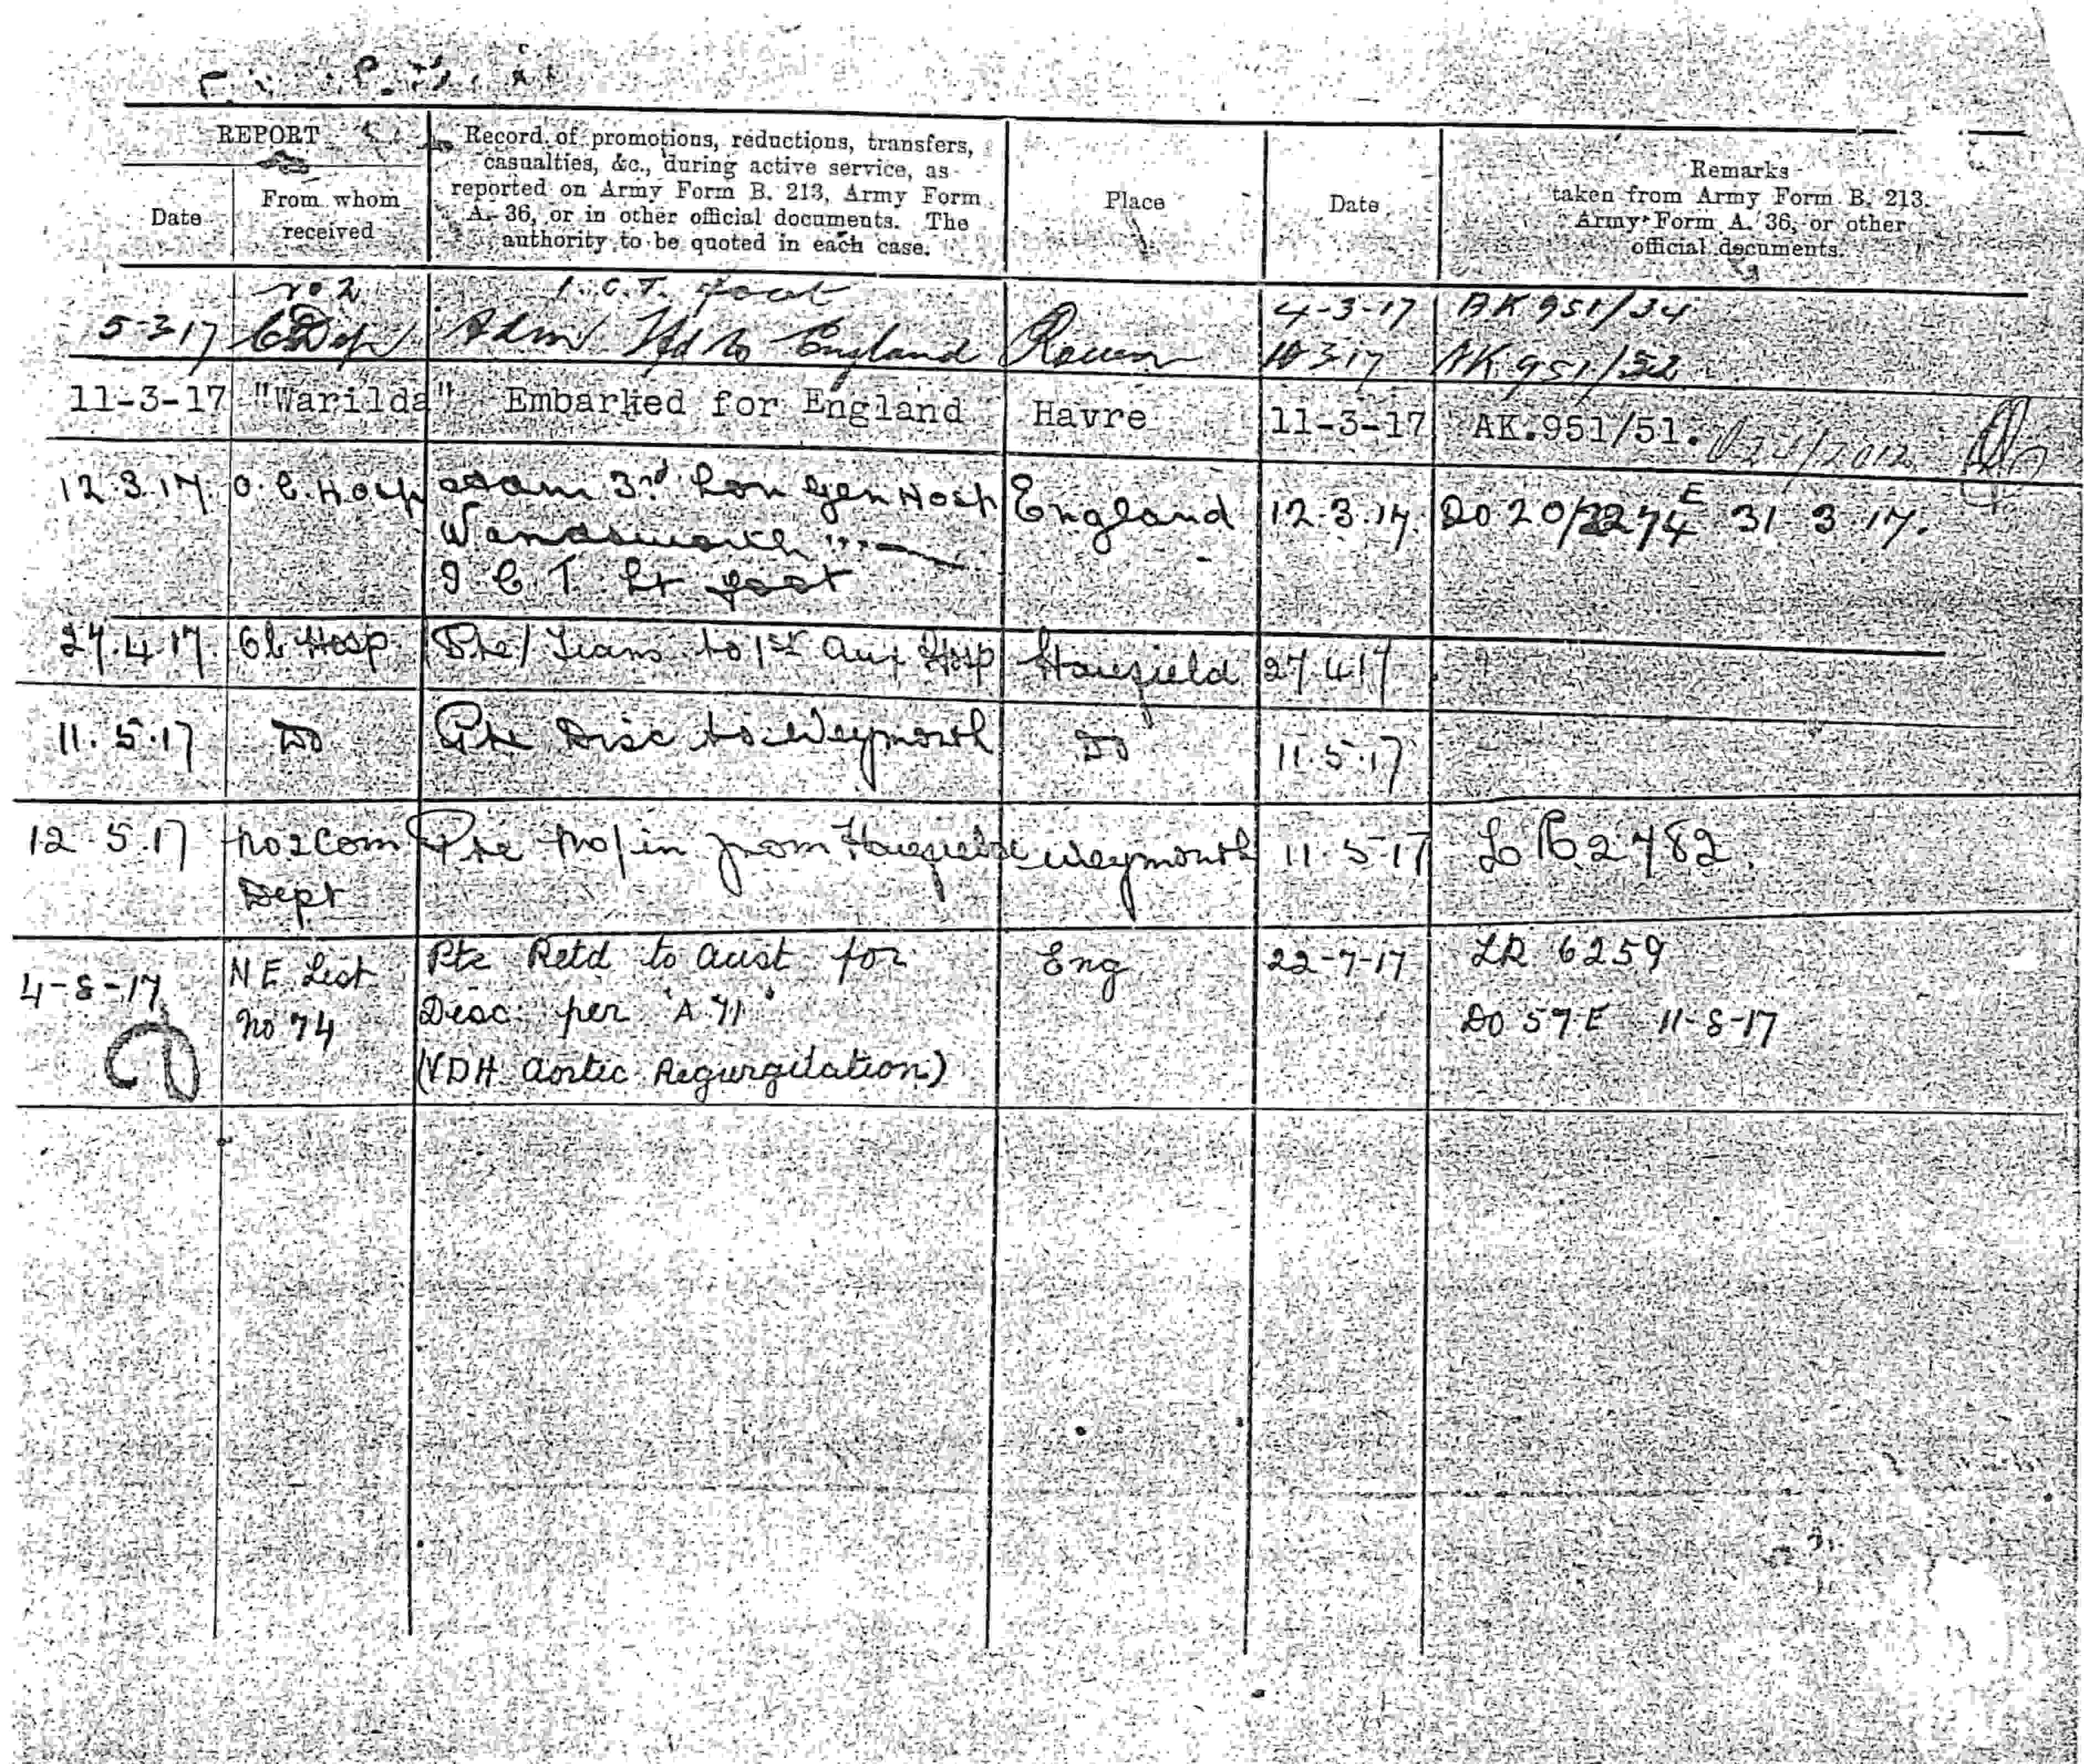 REPORT
Date
From whom
received
Record of promotions, reductions, transfers,
casualties, &c., during active service, as
reported on Army Form B. 213, Army Form
A. 36, or in other official documents. The
authority to be quoted in each case.
Place
Date
Remarks
taken from Army Form B. 213.
Army Form A. 36, or other
official documents.
No 2 I.C.T. foot 4-3-17 AK 951/34
5-3-17 Adm to England Rouen 10 3 17 AK 951/52
11-3-17 "Warilda" Embarked for England Havre 11-3-17 AK.951/51.
12.3.17. O.C. Hosp adam 3rd Lon Gen Hosp England 12.3.17. DO 20/2274 E 31 3 17.
Wandsworth
I C T Lt foot
27.4.17. Hosp Pte/ Trans to 1st Aux Hosp Harefield 27.4.17
11.5.17 Do Pte Disc to Weymouth Do 11.5.17
12.5.17 No 2 Com Pte in from Harefield Weymouth 11.5.17 2782.
Dept
4-8-17 N E List Pte Retd to Aust for Eng 22-7-17 LR 6259
No 74 Disc: per "A 41" DO 57E 11-8-17
(VDH Aortic Regurgitation)